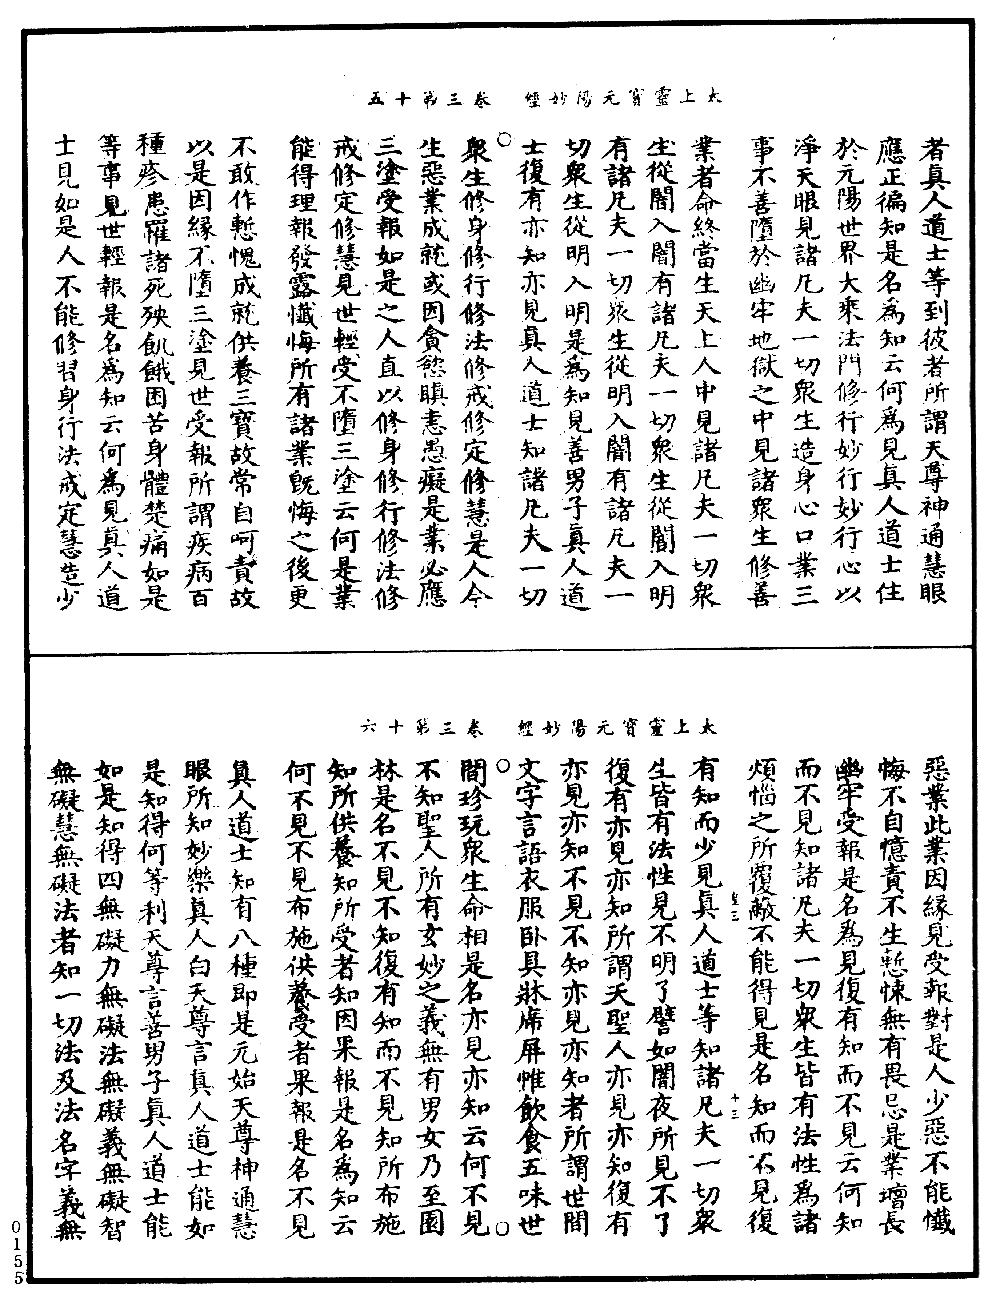 太上靈寳元陽妙經　卷三第十五
者真人道士等到彼者所謂天尊神通慧眼
應正徧知是名爲知云何爲見真人道士住
於元陽世界大乘法門修行妙行妙行心以
淨天眼見諸凡夫一切衆生造身心口業三
事不善墮於幽牢地獄之中見諸衆生修善
業者命終當生天上人中見諸凡夫一切衆
生從闇入闇有諸凡夫一切衆生從闇入明
有諸凡夫一切衆生從明入闇有諸凡夫一
切衆生從明入明是爲知見善男子真人道
士復有亦知亦見真人道士知諸凡夫一切
衆生修身修行修法修戒修定修慧是人今
生惡業成就或因貪慾瞋恚愚癡是業必應
三塗受報如是之人直以修身修行修法修
戒修定修慧見世輕受不墮三塗云何是業
能得理報發露懺悔所有諸業旣悔之後更
不敢作慙愧成就供養三寳故常自呵責故
以是因縁不墮三塗見世受報所謂疾病百
種疹患羅諸死殃飢餓困苦身體楚痛如是
等事見世輕報是名爲知云何爲見真人道
士見如是人不能修習身行法戒定慧造少
太上靈寳元陽妙經　卷三第十六
惡業此業因縁見受報對是人少惡不能懺
悔不自憶責不生慙悚無有畏忌是業增長
幽牢受報是名爲見復有知而不見云何知
而不見知諸凡夫一切衆生皆有法性爲諸
煩惱之所覆蔽不能得見是名知而不見復
有知而少見真人道士等知諸凡夫一切衆
生皆有法性見不明了譬如闇夜所見不了
復有亦見亦知所謂天聖人亦見亦知復有
亦見亦知不見不知亦見亦知者所謂世間
文字言語衣服卧具牀席屏惟飲食五味世
間珍玩衆生命相是名亦見亦知云何不見
不知聖人所有玄妙之義無有男女乃至園
林是名不見不知復有知而不見知所布施
知所供養知所受者知因果報是名爲知云
何不見不見布施供養受者果報是名不見
真人道士知有八種即是元始天尊神通慧
眼所知妙樂真人白天尊言真人道士能如
是知得何等利天尊言善男子真人道士能
如是知得四無礙力無礙法無礙義無礙智
無礙慧無礙法者知一切法及法名字義無
0155